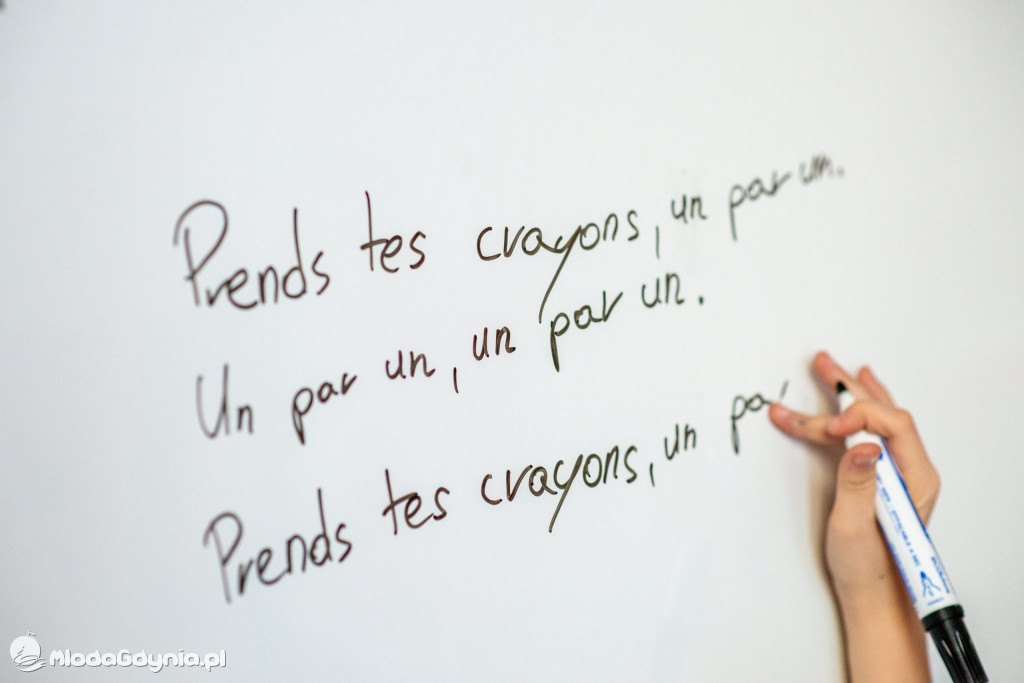 Prends tes crayons, un par un.
Un par un, un par un.
Prends tes crayons, un par
MlodaGdynia.pl